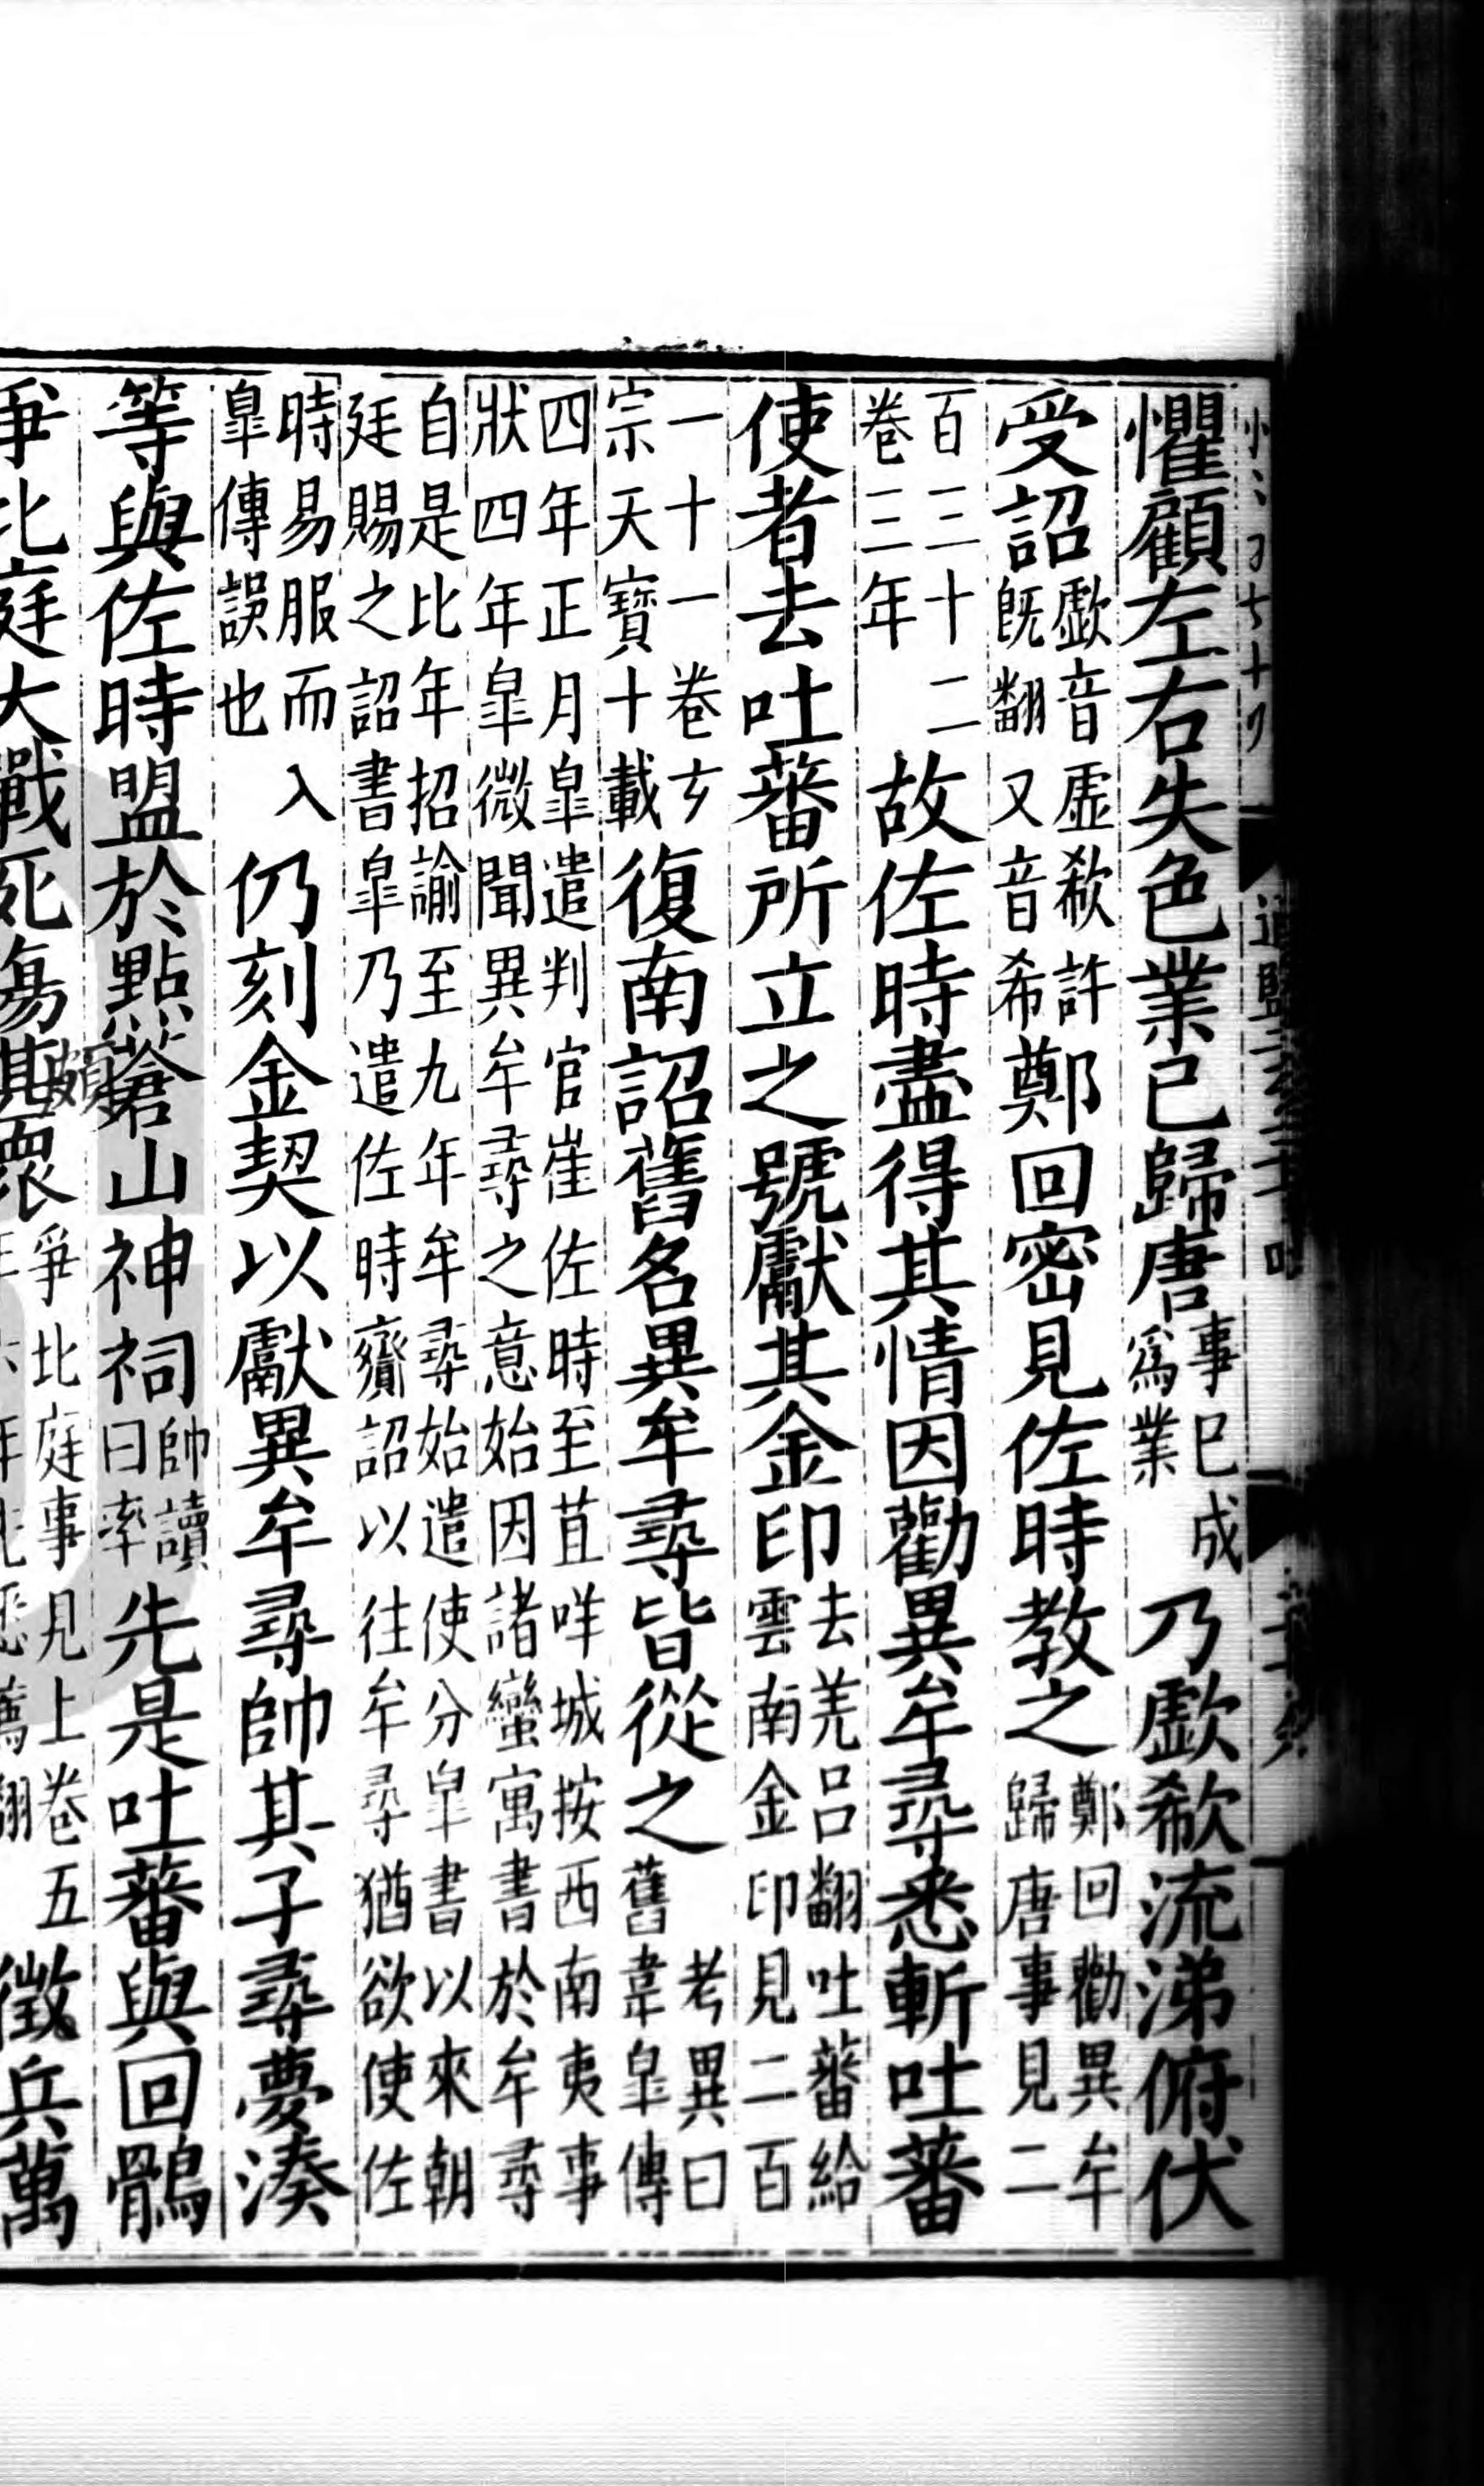 懼顧左右失色業已歸唐事已成爲業乃歔欷流涕俯伏
受詔歔音虛欷許旣翻又音希鄭回密見佐時教之鄭回勸異牟歸唐事見二
百三十二卷三年故佐時盡得其情因勸異牟尋悉斬吐蕃
使者去吐蕃所立之號獻其金印去羌呂翻吐蕃給雲南金印見二百
一十一卷玄宗天寶十載復南詔舊名異牟尋皆從之考異曰舊韋皐傳
四年正月皐遣判官崔佐時至苴咩城按西南夷事狀四年皐微聞異牟尋之意始因諸蠻寓書於牟尋
自是比年招諭至九年牟尋始遣使分皐書以來朝廷賜之詔書皐乃遣佐時齎詔以往牟尋猶欲使佐
時易服而入皐傳誤也仍刻金契以獻異牟尋帥其子尋夢湊
等與佐時盟於點蒼山神祠帥讀曰率先是吐蕃與回鶻
爭北庭大戰死傷甚衆爭北庭事見上卷五年六年先悉薦翻徵兵萬